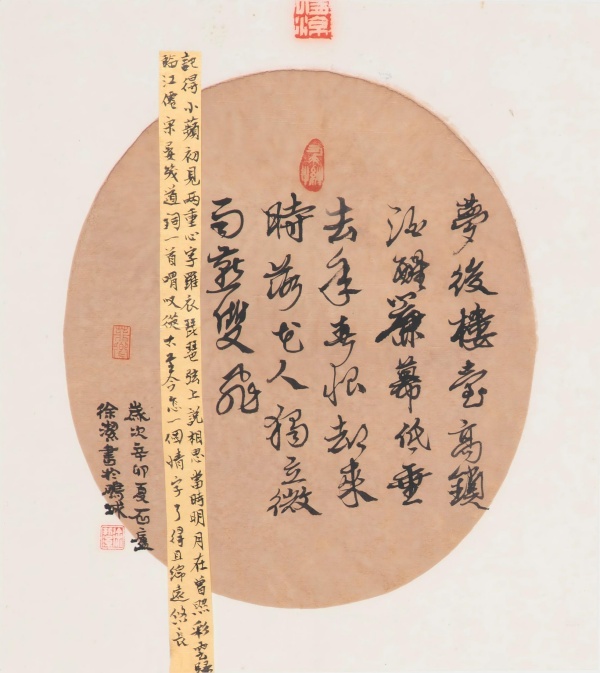 夢後樓臺高鎖
酒醒簾幕低垂
去年春恨却來
時落花人獨立微
雨燕雙飛
記得小蘋初見兩重心字羅衣琵琶弦上說相思當時明月在曾照彩雲歸
臨江僊宋晏幾道詞一首喟叹從古至今怎一個情字了得且綿遠悠長
歲次辛卯夏
徐潔書於